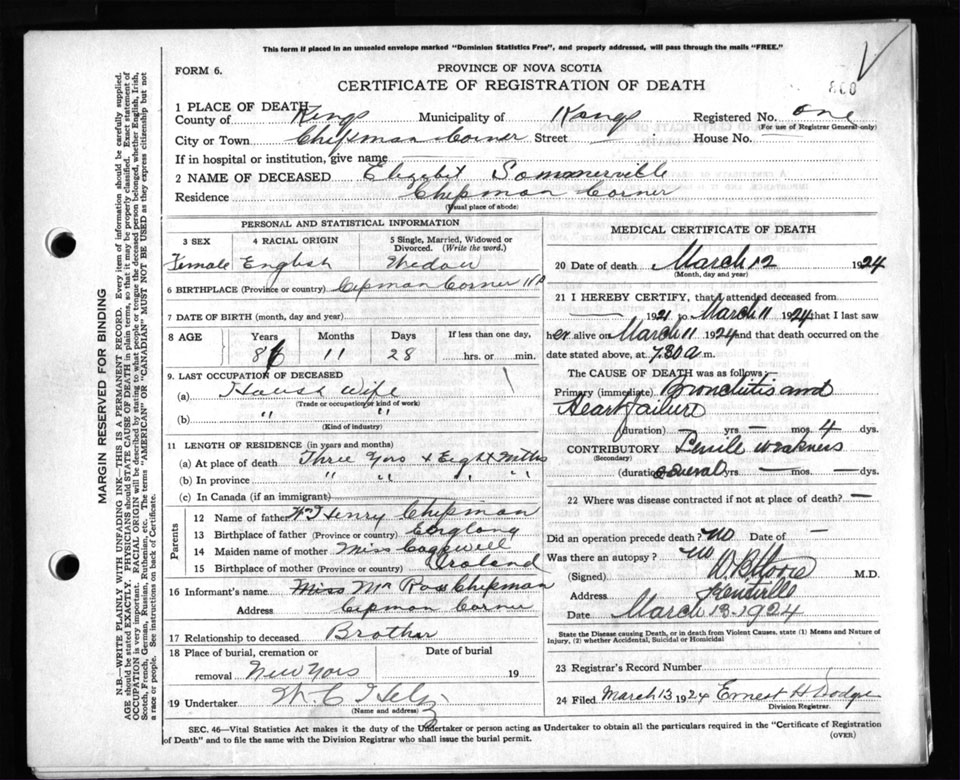 This form if placed in an unsealed envelope marked "Dominion Statistics Free", and properly addressed, will pass through the mails "FREE."
FORM 6.
PROVINCE OF NOVA SCOTIA
CERTIFICATE OF REGISTRATION OF DEATH
1 PLACE OF DEATH
County of Kings Municipality of Kings Registered No. one
(For use of Registrar General only)
City or Town Chipman Corner Street House No.
If in hospital or institution, give name
2 NAME OF DECEASED Elizabet Sommerville
Residence Chepman Corner
(Usual place of abode)
PERSONAL AND STATISTICAL INFORMATION
3 SEX 4 RACIAL ORIGIN 5 Single, Married, Widowed or Divorced. (Write the word.)
Female English Wedow
6 BIRTHPLACE (Province or country) Cipman Corner
7 DATE OF BIRTH (month, day and year)
8 AGE Years Months Days If less than one day,
86 11 28 hrs. or min.
9. LAST OCCUPATION OF DECEASED
(a) House Wife
(Trade or occupation or kind of work)
(b) " "
(Kind of industry)
11 LENGTH OF RESIDENCE (in years and months)
(a) At place of death Three Yors & Eight Mths
(b) In province " " " "
(c) In Canada (if an immigrant)
Parents
12 Name of father Henry Chipman
13 Birthplace of father (Province or country) England
14 Maiden name of mother Miss Cogswell
15 Birthplace of mother (Province or country)
16 Informant's name Miss Mr Ross Chipman
Address Cipman Corner
17 Relationship to deceased Brother
18 Place of burial, cremation or removal Date of burial
New Yors 19
19 Undertaker W. C.
(Name and address)
MEDICAL CERTIFICATE OF DEATH
20 Date of death March 12 1924
(Month, day and year)
21 I HEREBY CERTIFY, that I attended deceased from
1921 to March 11 1924 that I last saw
her alive on March 11 1924 and that death occurred on the
date stated above, at 7.30 a m.
The CAUSE OF DEATH was as follows:
Primary (immediate) Bronchitis and
Heart failure
(duration) — yrs. — mos. 4 dys.
CONTRIBUTORY Senile Weakness
(Secondary)
(duration) several yrs — mos. — dys.
22 Where was disease contracted if not at place of death? —
Did an operation precede death? no Date of —
Was there an autopsy? no
(Signed) M.D.
Address Kentville
Date March 13-1924
State the Disease causing Death, or in death from Violent Causes, state (1) Means and Nature of Injury, (2) whether Accidental, Suicidal or Homicidal
23 Registrar's Record Number
24 Filed March 13 1924 Ernest H Dodge
Division Registrar.
SEC. 46—Vital Statistics Act makes it the duty of the Undertaker or person acting as Undertaker to obtain all the particulars required in the "Certificate of Registration
of Death" and to file the same with the Division Registrar who shall issue the burial permit.
(OVER)
MARGIN RESERVED FOR BINDING
N.B.—WRITE PLAINLY WITH UNFADING INK—THIS IS A PERMANENT RECORD. Every item of information should be carefully supplied.
AGE should be stated EXACTLY. PHYSICIANS should STATE CAUSE OF DEATH in plain terms, so that it may be properly classified. Exact statement of
OCCUPATION is very important. RACIAL ORIGIN will be described by stating to what people or tongue the deceased person belonged, whether English, Irish,
Scotch, French, German, Russian, Ruthenian, etc. The terms "AMERICAN" or "CANADIAN" MUST NOT BE USED as they express citizenship but not
a race or people. See instructions on back of Certificate.